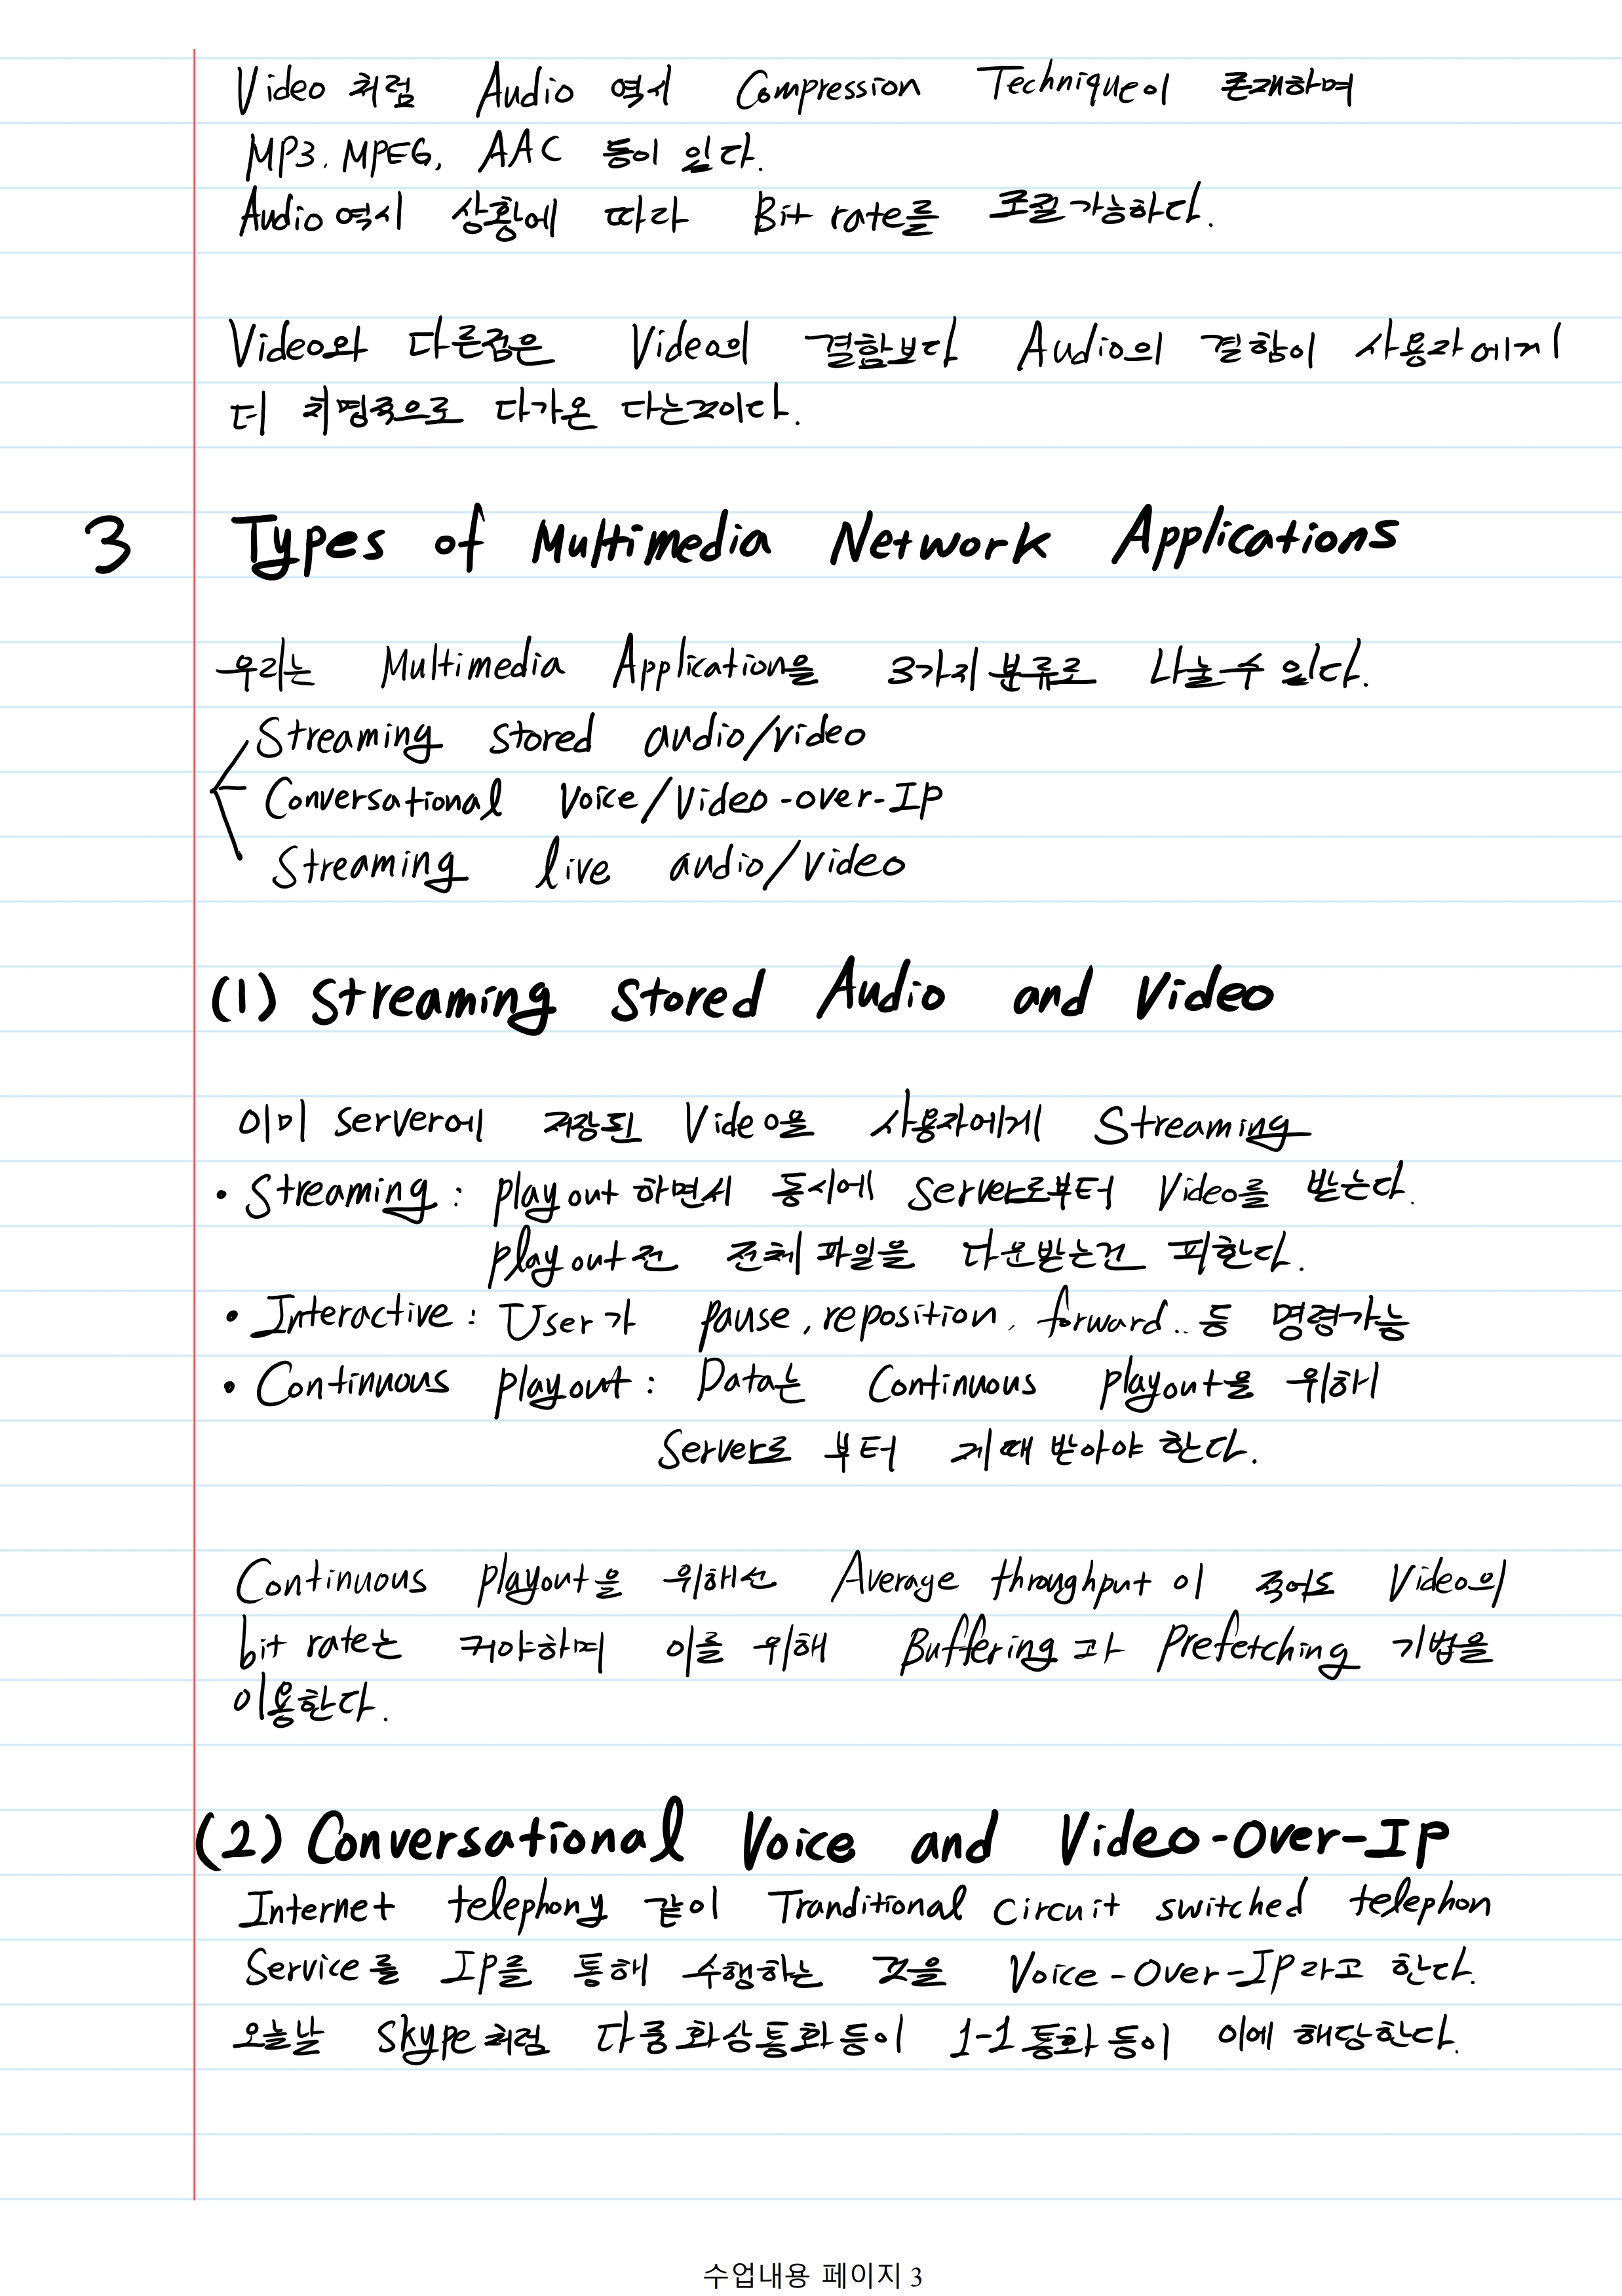 Video 처럼 Audio 역시 Compression Technique이 존재하며
MP3, MPEG, AAC 등이 있다.
Audio 역시 상황에 따라 Bit rate를 조절 가능하다.
Video와 다른점은 Video의 결함보다 Audio의 결함이 사용자에게
더 치명적으로 다가온 다는것이다.
3 Types of Multimedia Network Applications
우리는 Multimedia Application을 3가지 분류로 나눌수 있다.
Streaming stored audio/video
Conversational Voice/Video-over-IP
Streaming live audio/video
(1) Streaming Stored Audio and Video
이미 server에 저장된 Video을 사용자에게 Streaming
• Streaming : playout 하면서 동시에 Server로부터 Video를 받는다.
playout전 전체 파일을 다운받는건 피한다.
• Interactive : User가 pause, reposition, forward.. 등 명령가능
• Continuous playout : Data는 Continuous playout을 위하
Server로 부터 제때 받아야 한다.
Continuous playout을 위해선 Average throughput이 적어도 Video의
bit rate는 커야하며 이를 위해 Buffering과 Prefetching 기법을
이용한다.
(2) Conversational Voice and Video-Over-Ip
Internet telephony 같이 Tranditional circuit switched telephon
Service를 IP를 통해 수행하는 것을 Voice-Over-IP라고 한다.
오늘날 Skype 처럼 다중 화상통화 등이 1-1 통화 등이 이에 해당한다.
수업내용 페이지 3